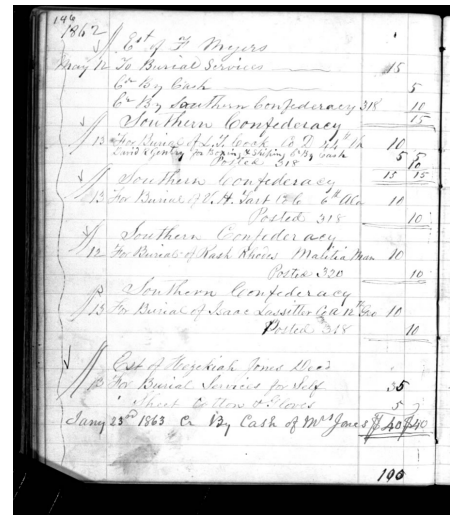 146
1862
Est of F Myers
May 12 To Burial Services 15
Cr By Cash 5
Cr By Southern Confederacy 318 10
15
Southern Confederacy
13 For Burial of L. T. Cook Co D 44th 10
David Gentry for Boxing & Cr By Cash 5 5
Posted 318 10
15 15
Southern Confederacy
13 For Burial of V. H. Tart 6th Ala 10
Posted 318 10
Southern Confederacy
13 For Burial of Kash Malitia Man 10
Posted 320 10
Southern Confederacy
13 For Burial of Isaac Lassitter Co 12th Geo 10
Posted 318 10
Est of Hezekiah Jones Decd
13 For Burial Services for Self 35
Sheet Cotton & Gloves 5
Jany 23rd 1863 Cr By Cash of Mrs Jones $40 $40
190